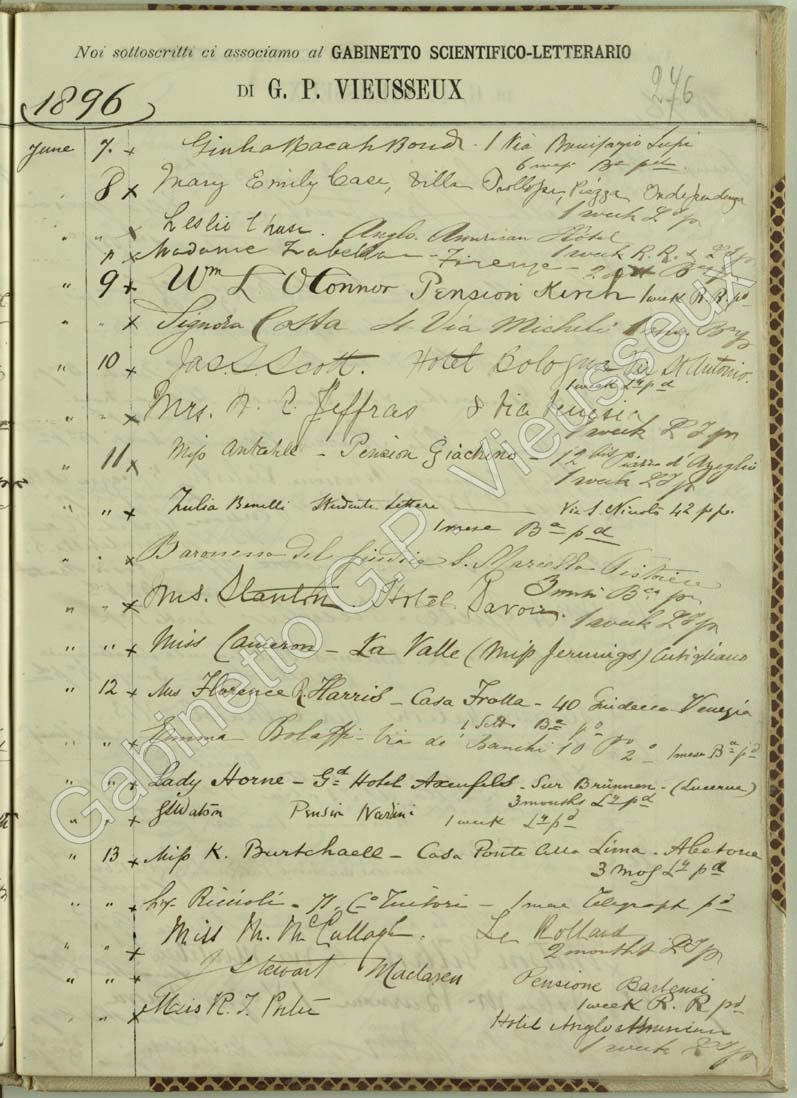 Noi sottoscritti ci associamo al GABINETTO SCIENTIFICO-LETTERARIO
DI G. P. VIEUSSEUX
276
1896
June 7. x 1 Via Bonifazio Lupi
6 mesi Ba pd
8 x Mary Emily Case, Villa Trollope, Piazza Independenza
1 week LY pd
" " x Leslie Chase. Anglo American Hotel
1 week R.R. & LY p
" x Madame Zabella - Firenze -
" 9 x Wm L O'Connor Pension Kirch 1 week R R pd
" " x Signora Costa 4 Via Micheli 1 mo. Ba p
" 10 x Jas. S. Scott. Hotel Bologna Via St Antonio.
1 week Ly pd
" " x Mrs. Jeffras 8 Via
1 week LY p
" 11 x Miss - Pension Giachino - 12 bis Piazza d'Azeglio
1 week LY p
" " x Zulia Benelli Studente Lettere Via S. Nicolò 42 p.p.
1 mese Ba pd
" " x Baronessa Del Giudice S. Marcello Pistoiese
3 mesi Ba p
" " x Mrs. Stanton. Hotel Savoia.
1 week LY p
" " x Miss Cameron - La Valle (Miss Jennings) Cutigliano
" 12 x Mrs Florence R. Harris - Casa Frolla - 40 Giudecca Venezia
1 Sett. Ba pd
" " x Emma Bolaffi - Via de' Banchi 10 Po 2o 1 mese Ba pd
" " x Lady Horne - Gd Hotel Axenfels - Sur Brünnen - (Lucerne)
3 months Ly pd
" " x G Watson Pension Nardini 1 week Ly pd
" 13 x Miss K. Burtchaell - Casa Ponte alla Lima - Abetone
3 mos Ly pd
" " x Riccioli - 1 mese Telegraph pd
" " x Miss M. McCullagh. Le Rolland
2 months LY p
" " x J Stewart Maclaren Pensione Barbensi
1 week R. R pd
" " x R. J. Hotel Anglo American
1 week LY p
Gabinetto G.P. Vieusseux